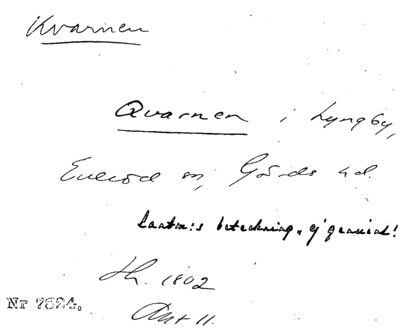 Kvarnen
Qvarnen i Lyngby,
Everöd sn, Gärds hd.
Lantm:s beteckning, ej granskat!
Sk. 1802
Akt 11.
Nr 7824.